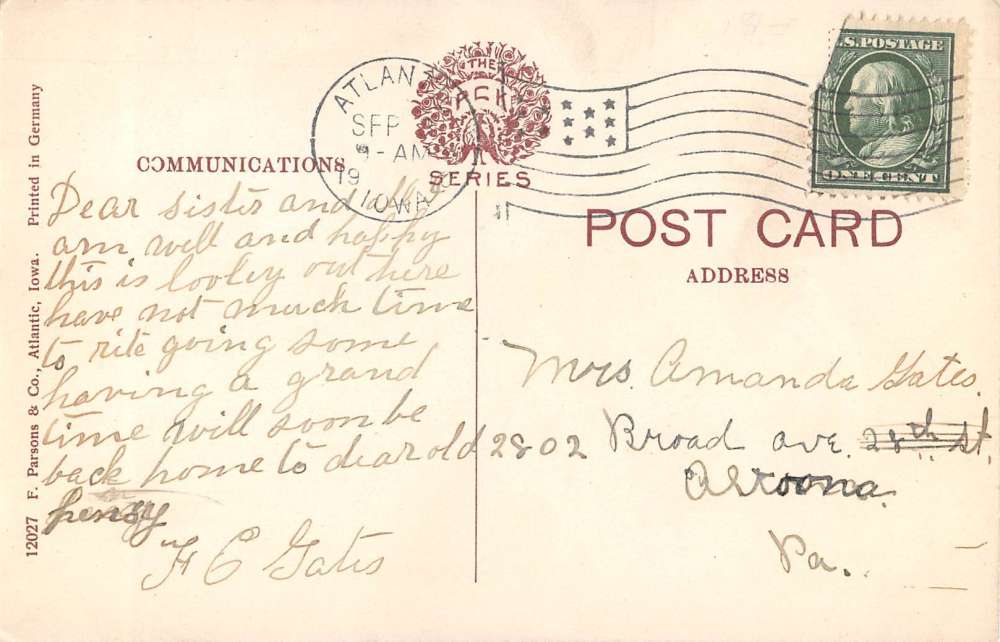 12027 F. Parsons & Co., Atlantic, Iowa. Printed in Germany
COMMUNICATIONS
Dear sister and
am well and happy
this is looley out here
have not much time
to rite going some
having a grand
time will soon be
back home to dear old
H C Gates
ATLAN
SEP
AM
19
IOWA
11
THE
P C K
SERIES
U.S. POSTAGE
ONE CENT
POST CARD
ADDRESS
Mrs. Amanda Gates.
2802 Broad ave. 28th st.
Altoona.
Pa.